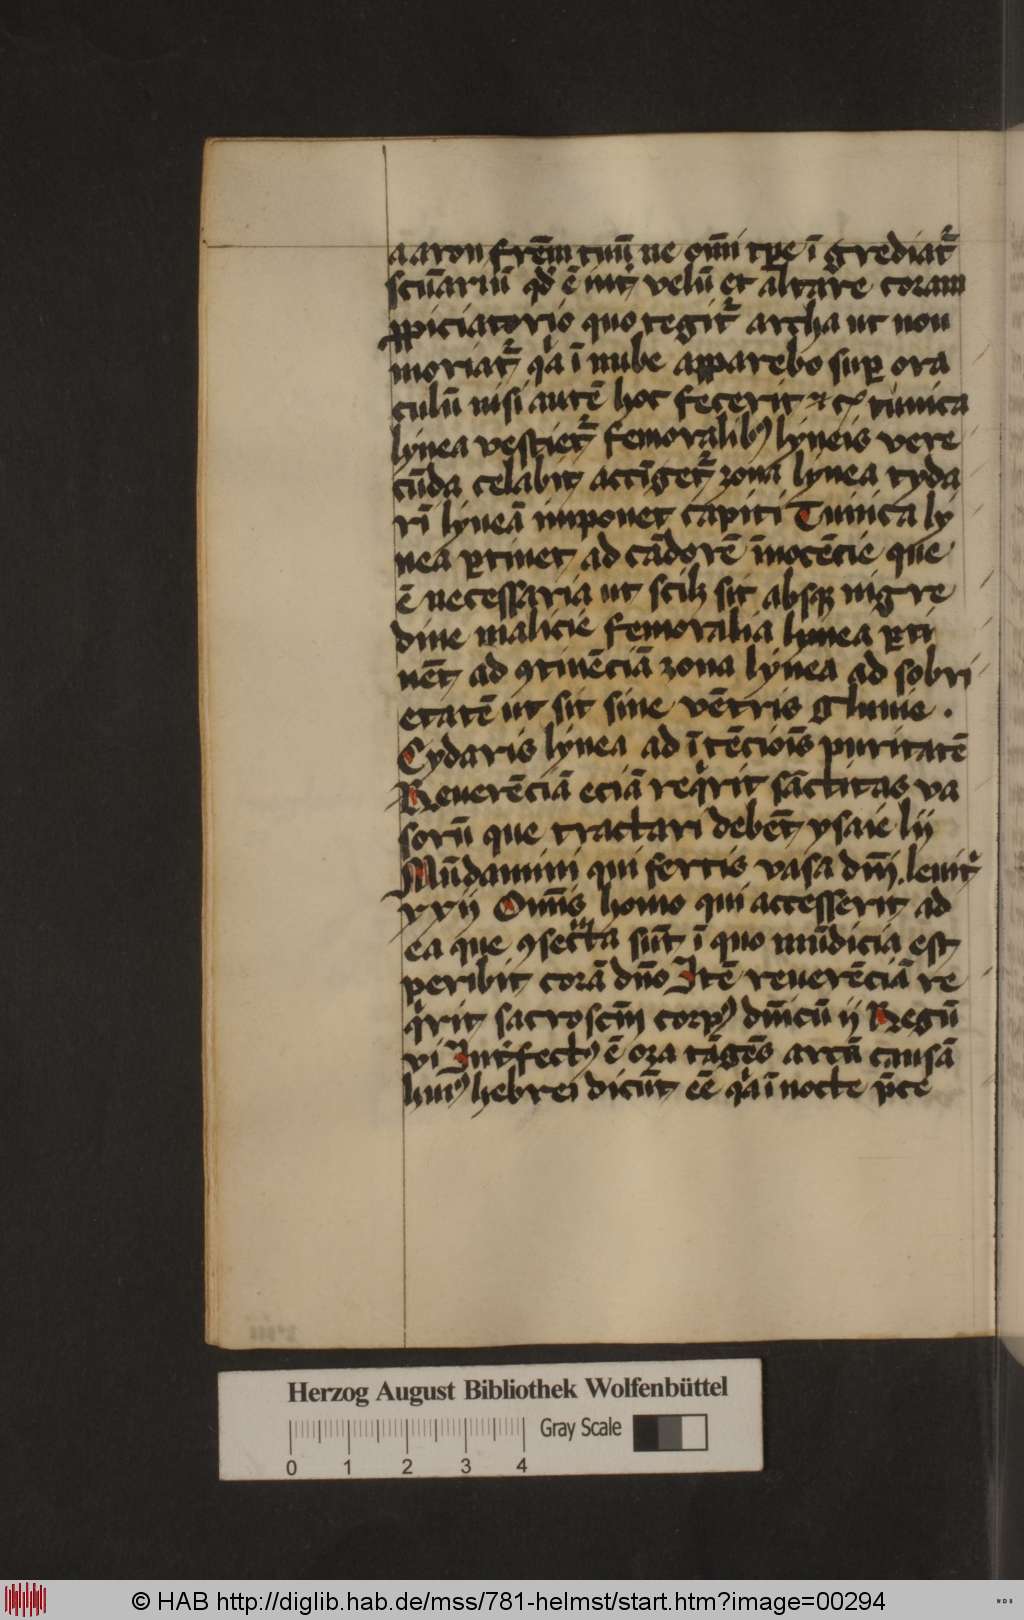 aaron frēm tuū ne om̄i tꝑe ī grediat᷑
scūariū qd̓ ē int᷑ velū et altare coram
ꝓpiciatorio quo tegit᷑ archa ut non
moriat᷑ qͥa ī nube apparebo suꝑ ora
culū nisi autē hoc fecerit ⁊ cͭ tunica
lynea vestiet᷑ femoralibꝰ lyneis vere
cūda celabit accīget᷑ zona lynea cyda
rī lyneā imponet capiti Tunica ly
nea ꝑtinet ad cādorē īnocēcie que
ē necessaria ut scilꝫ sit absqꝫ nigre
dine malicie femoralia lynea ꝑti
nēt ad ꝯtinēciā zona lynea ad sobri
etatē ut sit sine vētris gluuie .
Cydaris lynea ad ītēciōis puritatē
Reuerēciā eciā reqͥrit sāctitas va
sorū que tractari debēt ysaie lij
Mūdamini qui fertis vasa dn̄i . leuit᷑
xxij Om̄is homo qui accesserit ad
ea que ꝯsecͣta sūt ī quo inmūdicia est
peribit corā dn̄o Itē reuerēciā re
qͥrit sacrosc̄m corpꝰ dn̄icū ij Regū
vi Int᷑fectꝰ ē oza tāgēs arcū causā
huiꝰ hebrei dicūt eē qͥa ī nocte p̄ce
Herzog August Bibliothek Wolfenbüttel
Gray Scale
0 1 2 3 4
© HAB http://diglib.hab.de/mss/781-helmst/start.htm?image=00294